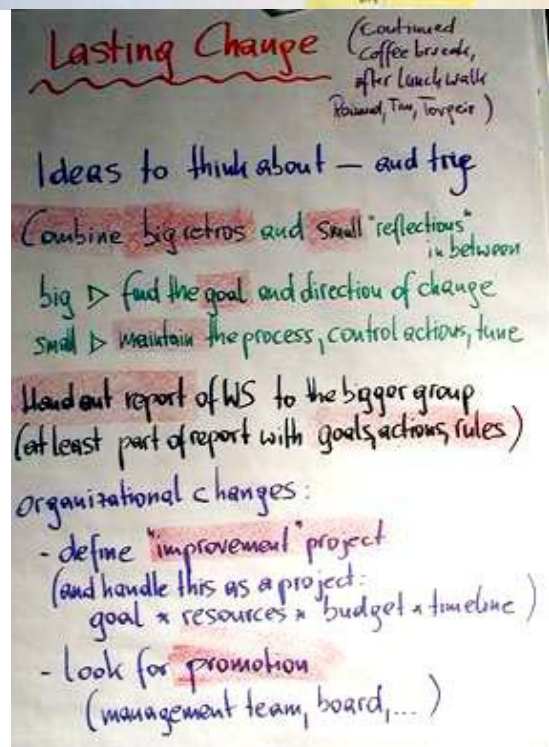 Lasting Change
(Continued
Coffee break,
after Lunch walk
Tim, Torgeir)
Ideas to think about — and try
Combine big retros and small "reflections"
in between
big ▷ find the goal and direction of change
small ▷ maintain the process, control actions, tune
Hand out report of WS to the bigger group
(at least part of report with goals, actions, rules)
organizational changes:
- define "improvement" project
(and handle this as a project:
goal * resources * budget * timeline)
- look for promotion
(management team, board, ...)